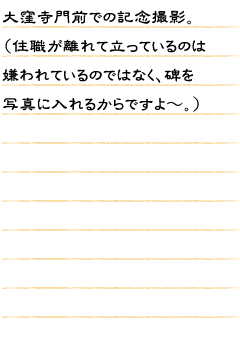 大窪寺門前での記念撮影。
(住職が離れて立っているのは
嫌われているのではなく、碑を
写真に入れるからですよ~。)